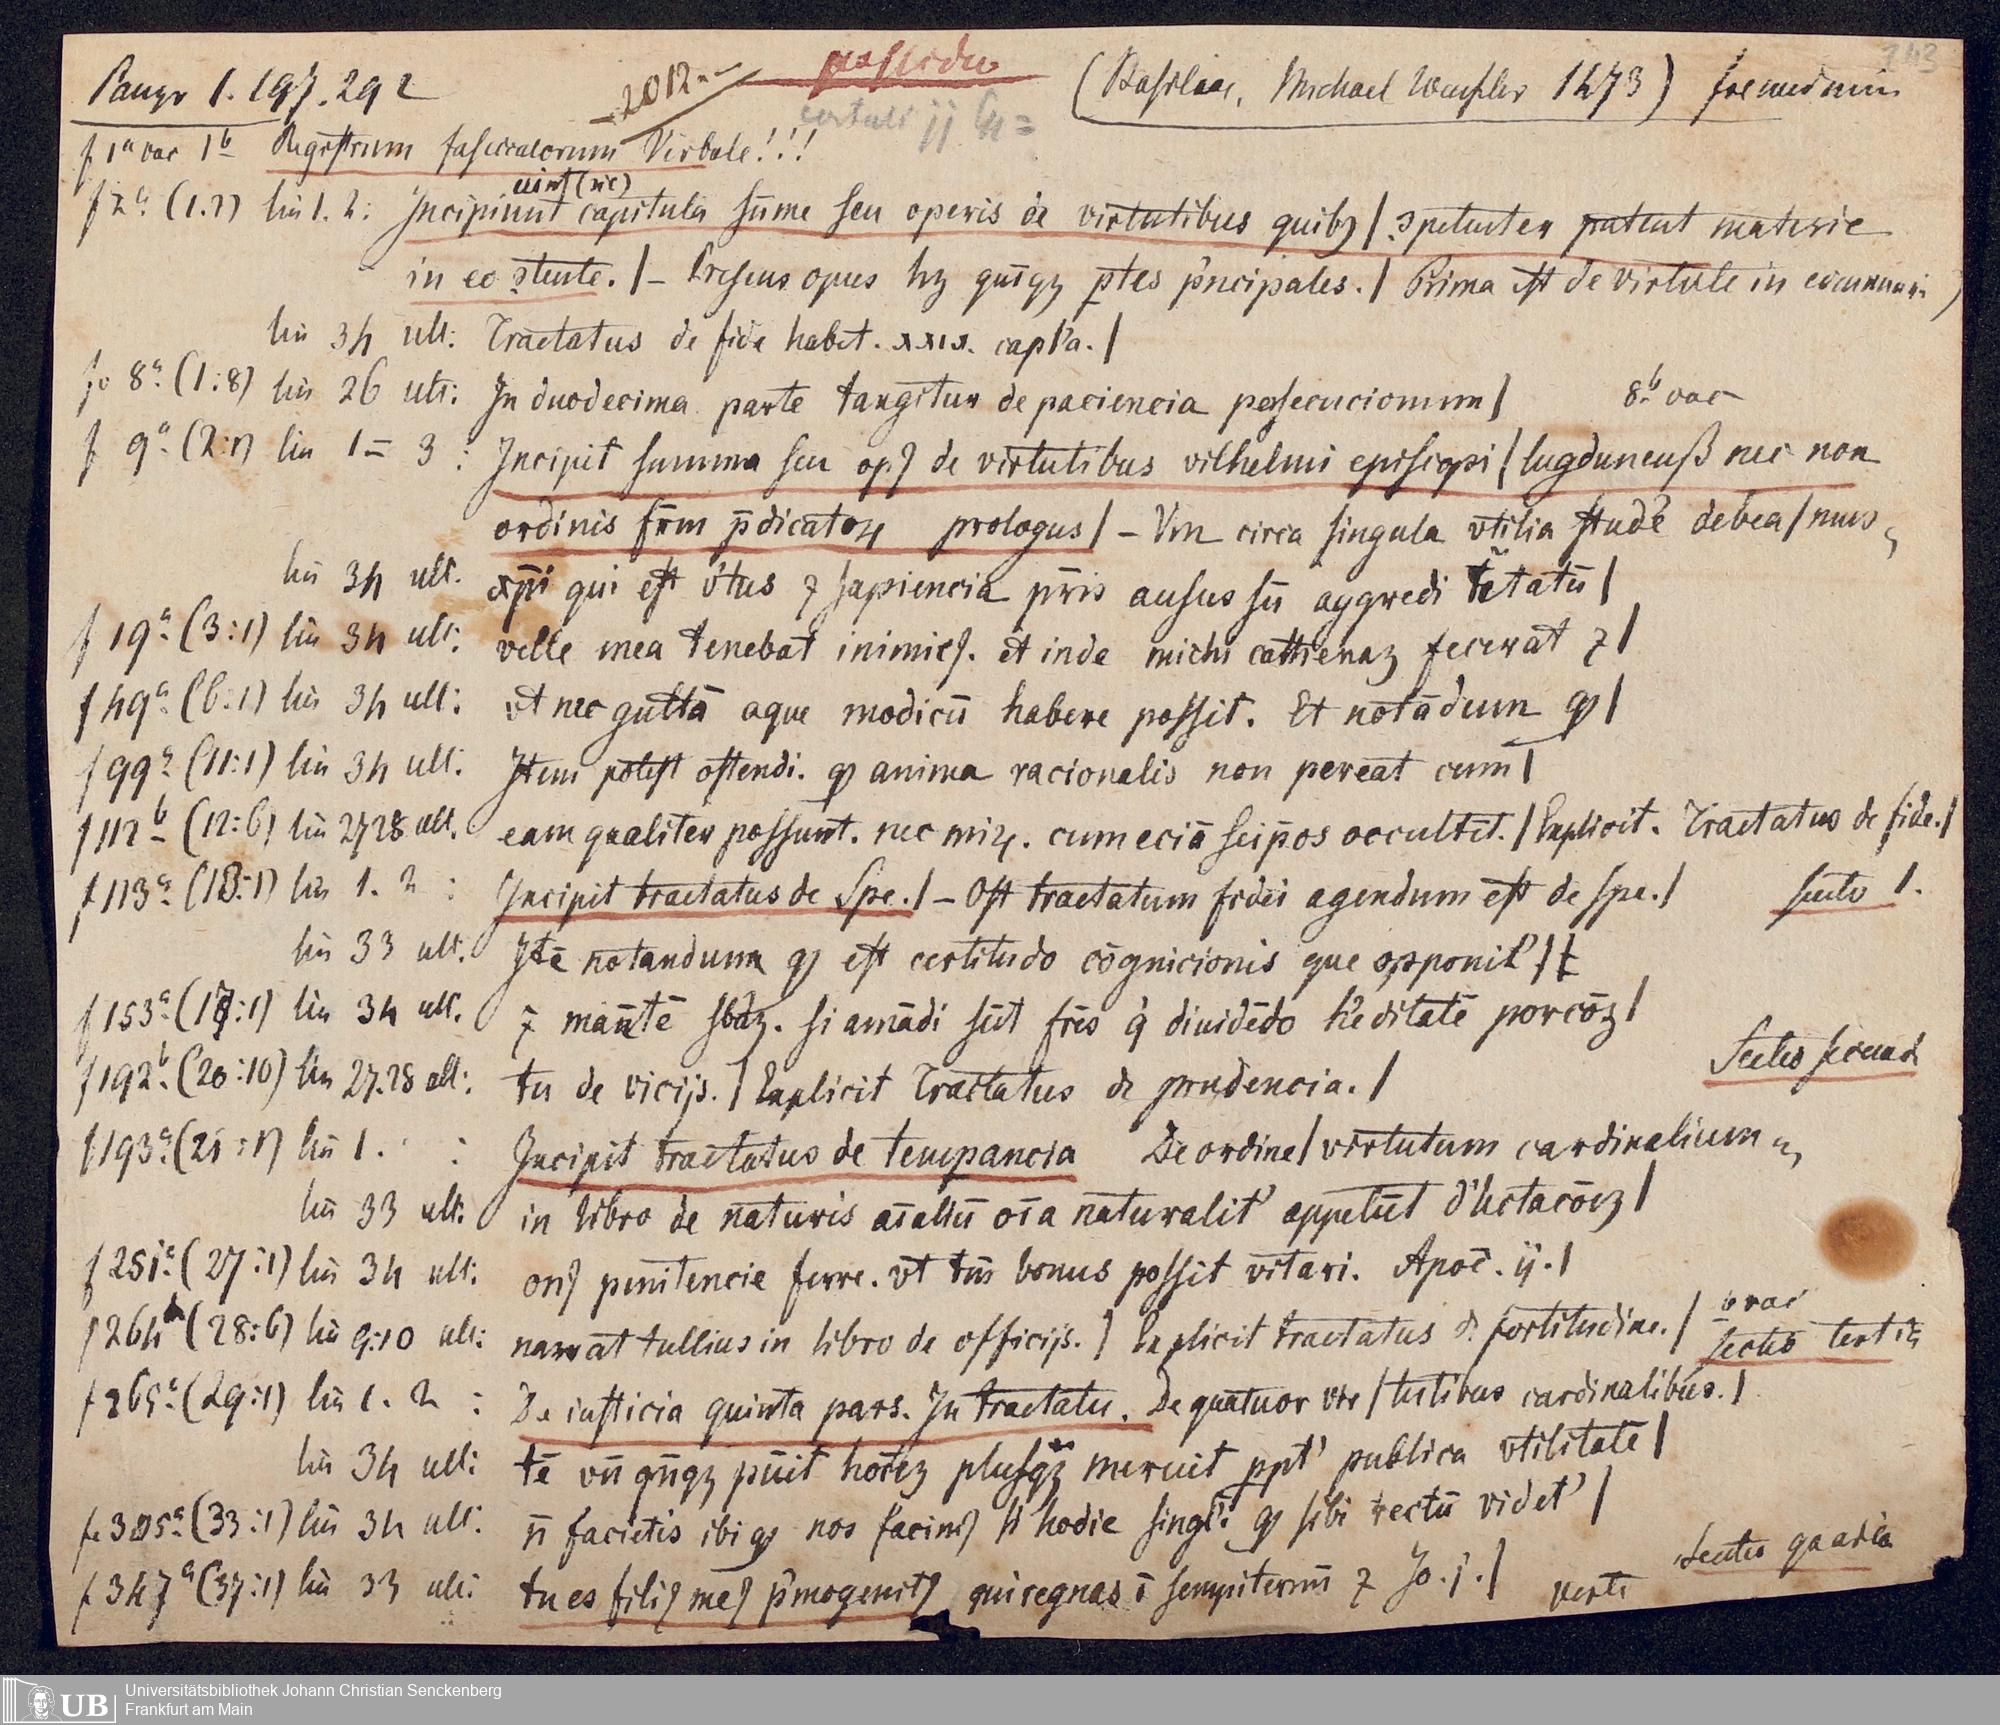 Panzer 1. 197. 292
2012
possideo
(Basileae, Michael Wenssler 1473)
243
f 1ª vac 1b Registrum fasciculorum Verbale!!!
uint (sic)
f 2ª (1.2) lin 1. 2: Incipiunt capitula sūme seu operis de virtutibus quibȝ / ꝯpetenter patent materie
in eo ꝯtente. / – Presens opus hȝ quīqȝ ꝑtes p'ncipales. / Prima est de virtute in
lin 34 ult: Tractatus de fide habet. xxix. cap'la. /
fo 8ª (1:8) lin 26 ult: In duodecima parte tangitur de paciencia persecucionum / 8b vac
f 9ª (2:1) lin 1 – 3: Incipit summa seu opꝰ de virtutibus vilhelmi episcopi / lugdunenß nec non
ordinis frm p̄dicatoꝝ prologus / – Vm circa singula vtilia studē debea / mus
lin 34 ult. xp̄i qui est v'tus ⁊ sapiencia pr̄is ausus sū aggredi tētatū /
f 19ª (3:1) lin 34 ult: velle mea tenebat inimicꝰ. et inde michi cathenaȝ fecerat ⁊ /
f 49ª (6:1) lin 34 ult: vt nec guttā aque modicū habere possit. Et notādum ꝙ /
f 99ª (11:1) lin 34 ult: Item potest ostendi. ꝙ anima racionalis non pereat cum /
f 112b (12:6) lin 27 28 ult. eam qualiter possunt. nec miꝝ. cum eciā seip̄os occultēt. / Explicit. Tractatus de fide. /
f 113ª (13:1) lin 1. 2: Incipit tractatus de Spe. / – Ost tractatum fidei agendum est de spe. / sectio 1.
lin 33 ult. Itē notandum ꝙ est certitudo cōgnicionis que opponit' /
f 153ª (17:1) lin 34 ult. si amādi sūt frēs diuidēdo h'editatē porcōȝ /
f 192b (20:10) lin 27.28 ult: tu de vicijs. / Explicit Tractatus de prudencia. / Sectio secund
f 193ª (21:1) lin 1. : Incipit tractatus de temꝑancia De ordine / virtutum cardinalium
lin 33 ult: in libro de naturis aīaliū oīa naturalit' appetūt d'lectacōeȝ /
f 251ª (27:1) lin 34 ult: onꝰ penitencie ferre. vt tm̄ bonus possit vitari. Apoc̄. ij. /
f 264b (28:6) lin 9:10 ult: narrat tullius in libro de officijs. / Explicit tractatus d. fortitudine. / vac
sectio tertia
f 265ª (29:1) lin 1. 2: De iusticia quinta pars. In tractatu. De quatuor vir / tutibus cardinalibus. /
lin 34 ult: plusqȝ meruit ꝑpt' publica vtilitatē /
f 305ª (33:1) lin 34 ult: n̄ facietis ibi nos facimꝰ h' hodie singl'i ꝙ sibi rectū videt' /
f 347ª (37:1) lin 33 ult: tu es filiꝰ meꝰ p'mogenitꝰ qui regnas ī sempiternū ⁊ Jo. j. / verte
Sectio quarta
UB
Universitätsbibliothek Johann Christian Senckenberg
Frankfurt am Main